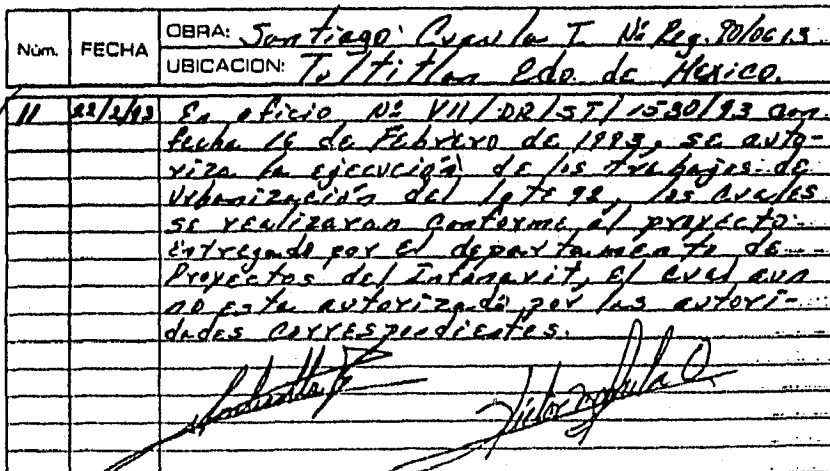 Núm. FECHA OBRA: Santiago Cuautla I. Nº Reg. 90/0613
UBICACION: Tultitlan Edo. de Mexico.
11 22/2/93 En oficio Nº VII/DR/ST/1530/93 con
fecha 16 de Febrero de 1993, se auto-
riza la ejecución de los trabajos de
Urbanización del lote 92, los cuales
se realizaran conforme al proyecto
entregado por el departamento de
Proyectos del Infonavit, el cual aun
no esta autorizado por las autori-
dades correspondientes.